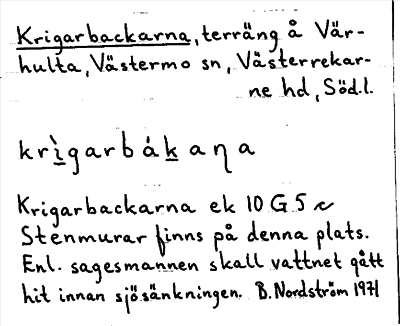 Krigarbackarna, terräng å Vär-
hulta, Västermo sn, Västerrekar-
ne hd, Södl.
krì̱garbáḵaƞa
Krigarbackarna ek 10 G 5 c
Stenmurar finns på denna plats.
Enl. sagesmannen skall vattnet gått
hit innan sjösänkningen. B. Nordström 1971